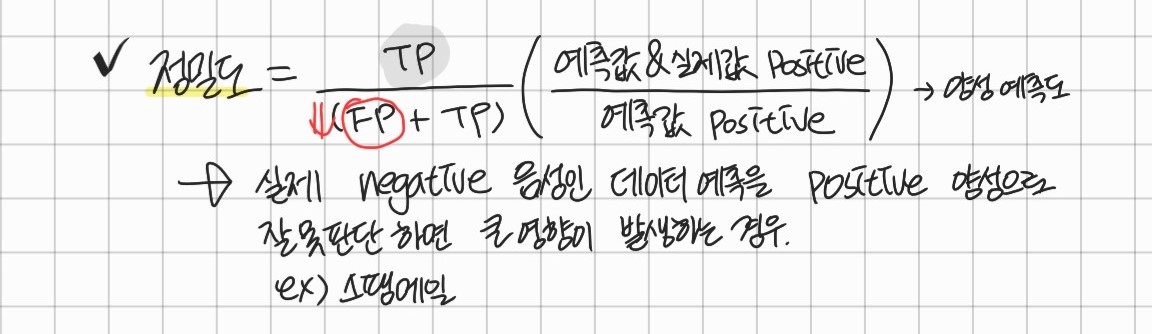 ✓ 정밀도 = TP / ↓(FP + TP) (예측값&실제값 Positive / 예측값 Positive) → 양성 예측도
→ 실제 negative 음성인 데이터 예측을 positive 양성으로
잘못판단 하면 큰 영향이 발생하는 경우.
ex) 스팸메일